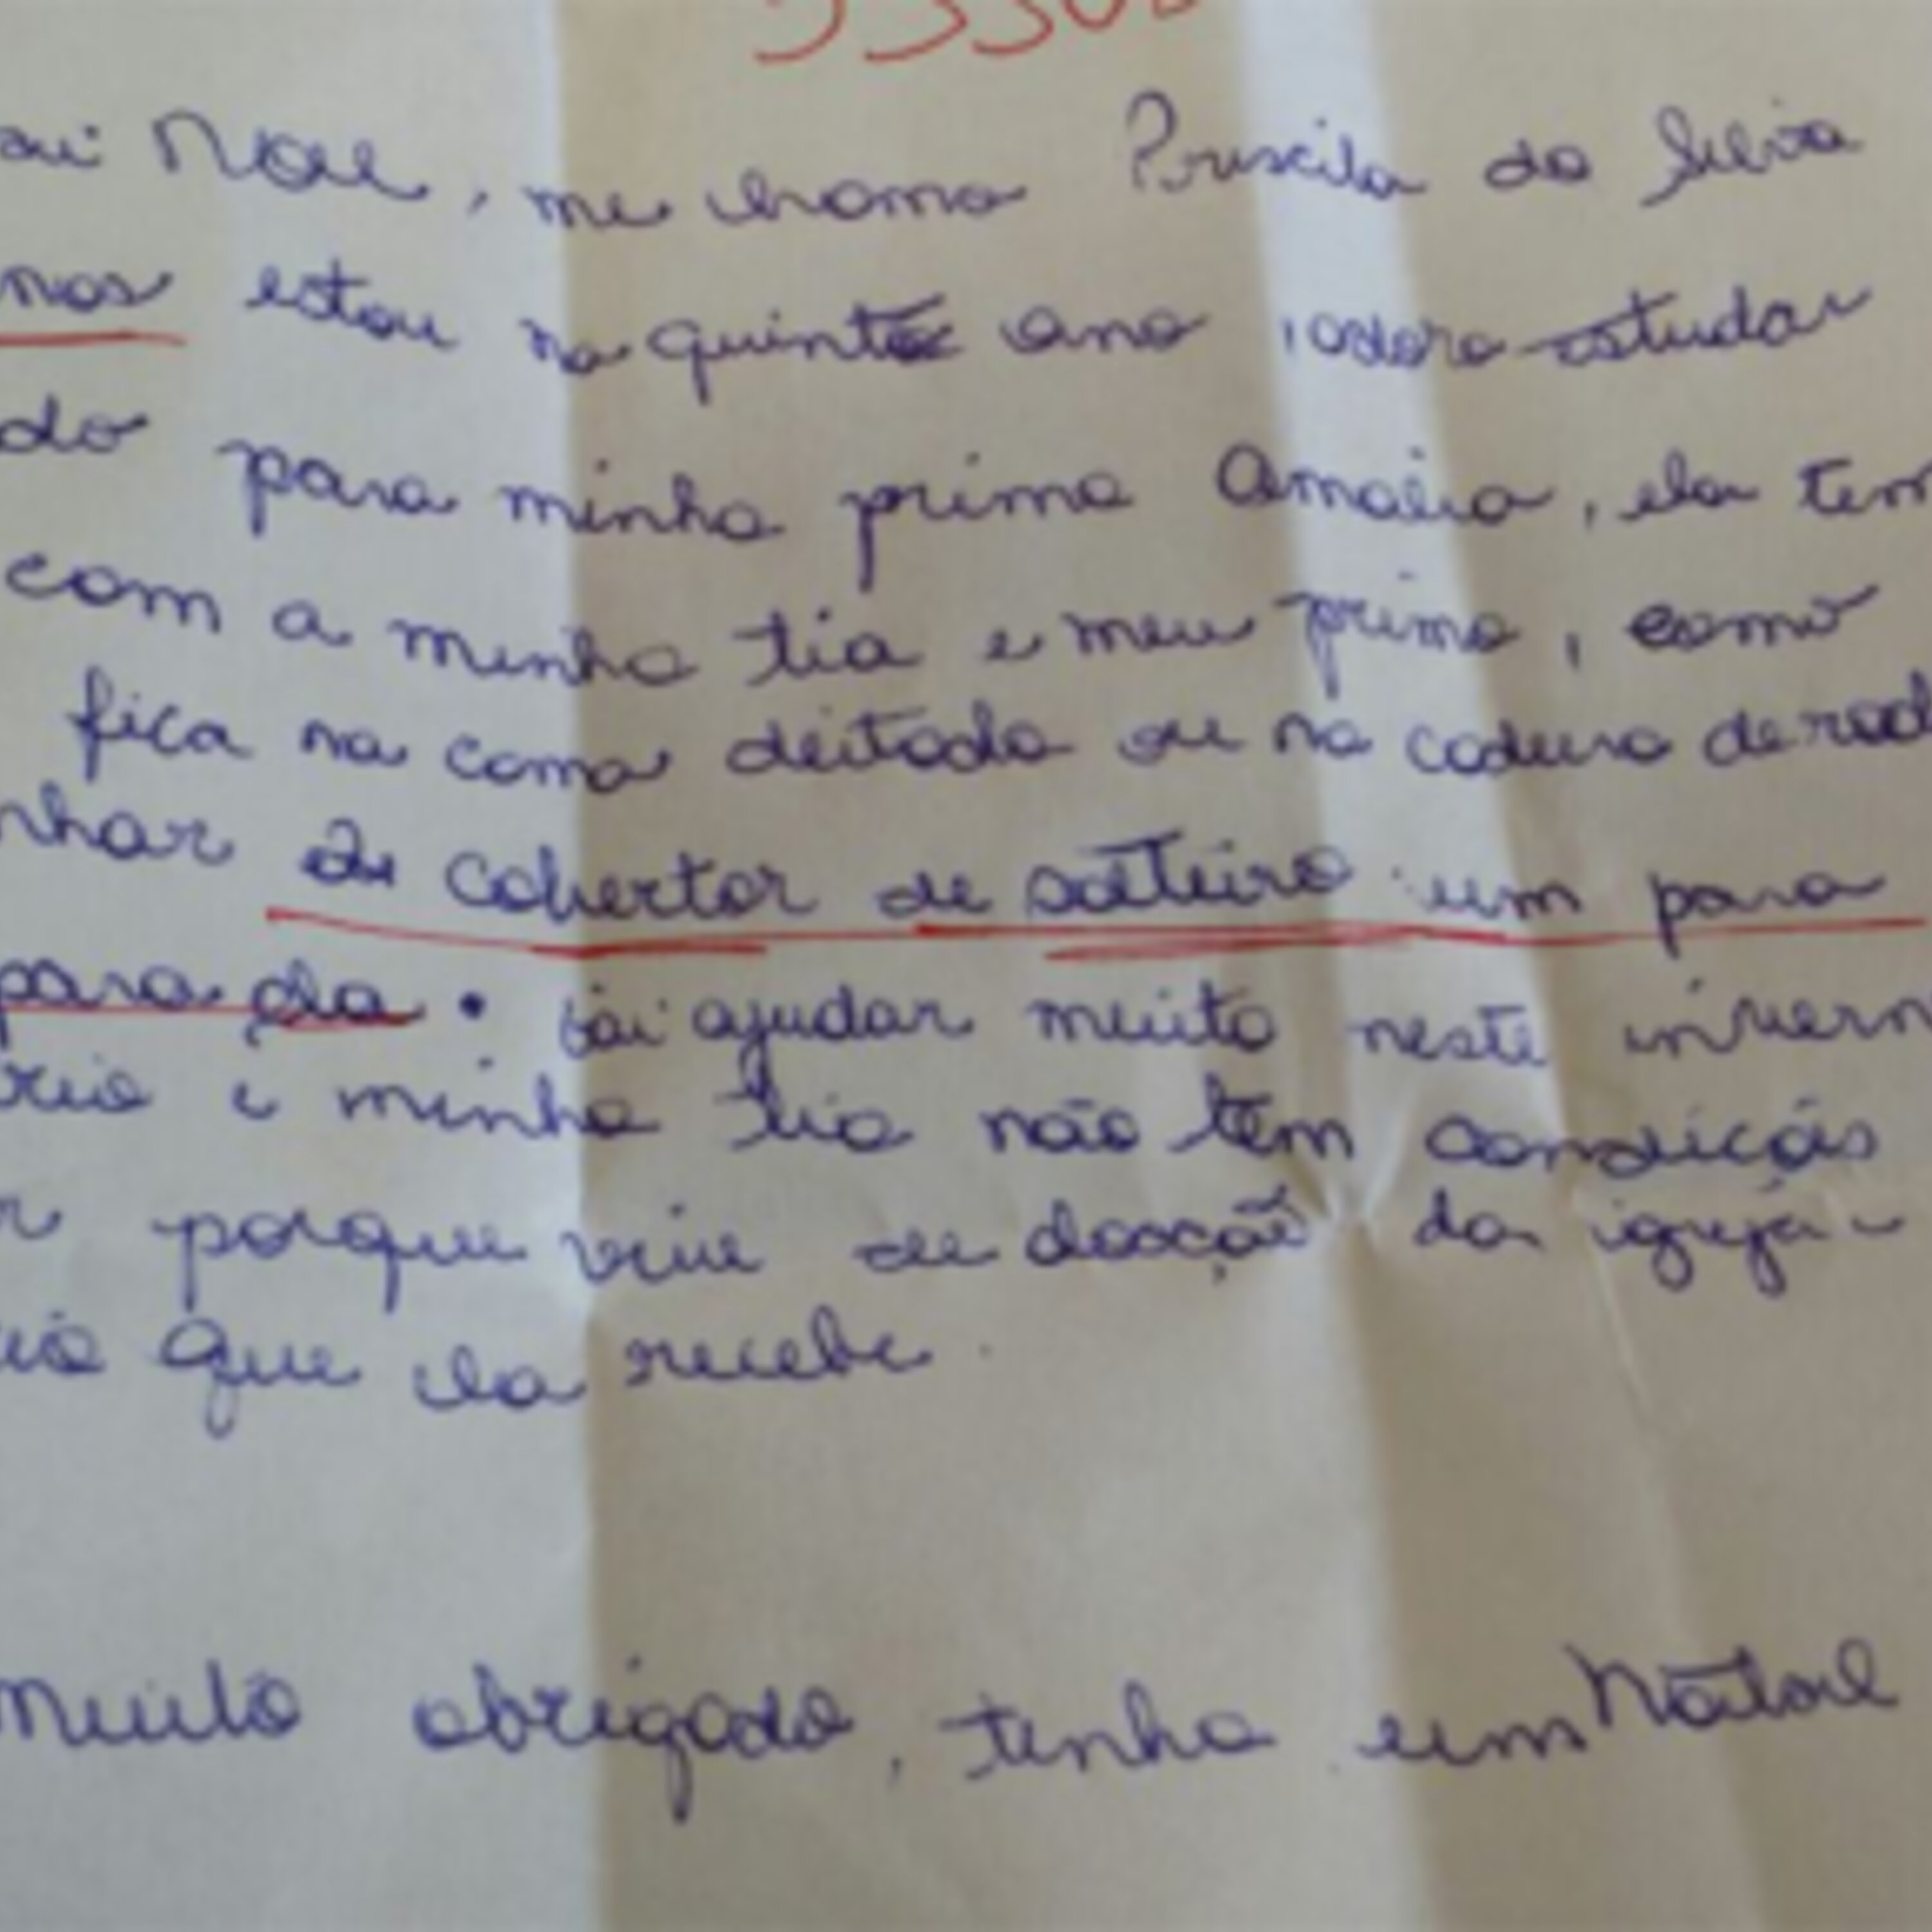 Noel, me chamo Priscila da Silva
nos estou no quinto ano, adoro estudar
do para minha prima Amalia, ela tem
com a minha tia e meu primo, como
fica na cama deitada ou na cadeira de rod
nhar 2 cobertor de solteiro um para
para ela. vai ajudar muito neste invern
rio e minha tia não tem condições
r porque vive de doação da igreja e
que ela recebe.
Muito obrigado, tenha um Natal